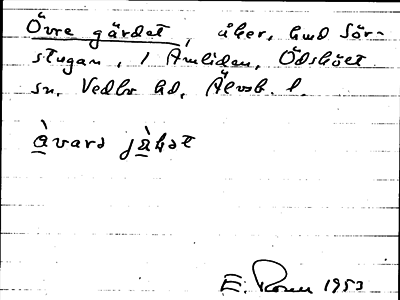 Övre gärdet, åker, hmd Sör-
stugan, 1 Amliden, Ödsköet
sn, Vedbo hd, Älvsb. l.
àvarə jàkət
E. 1953